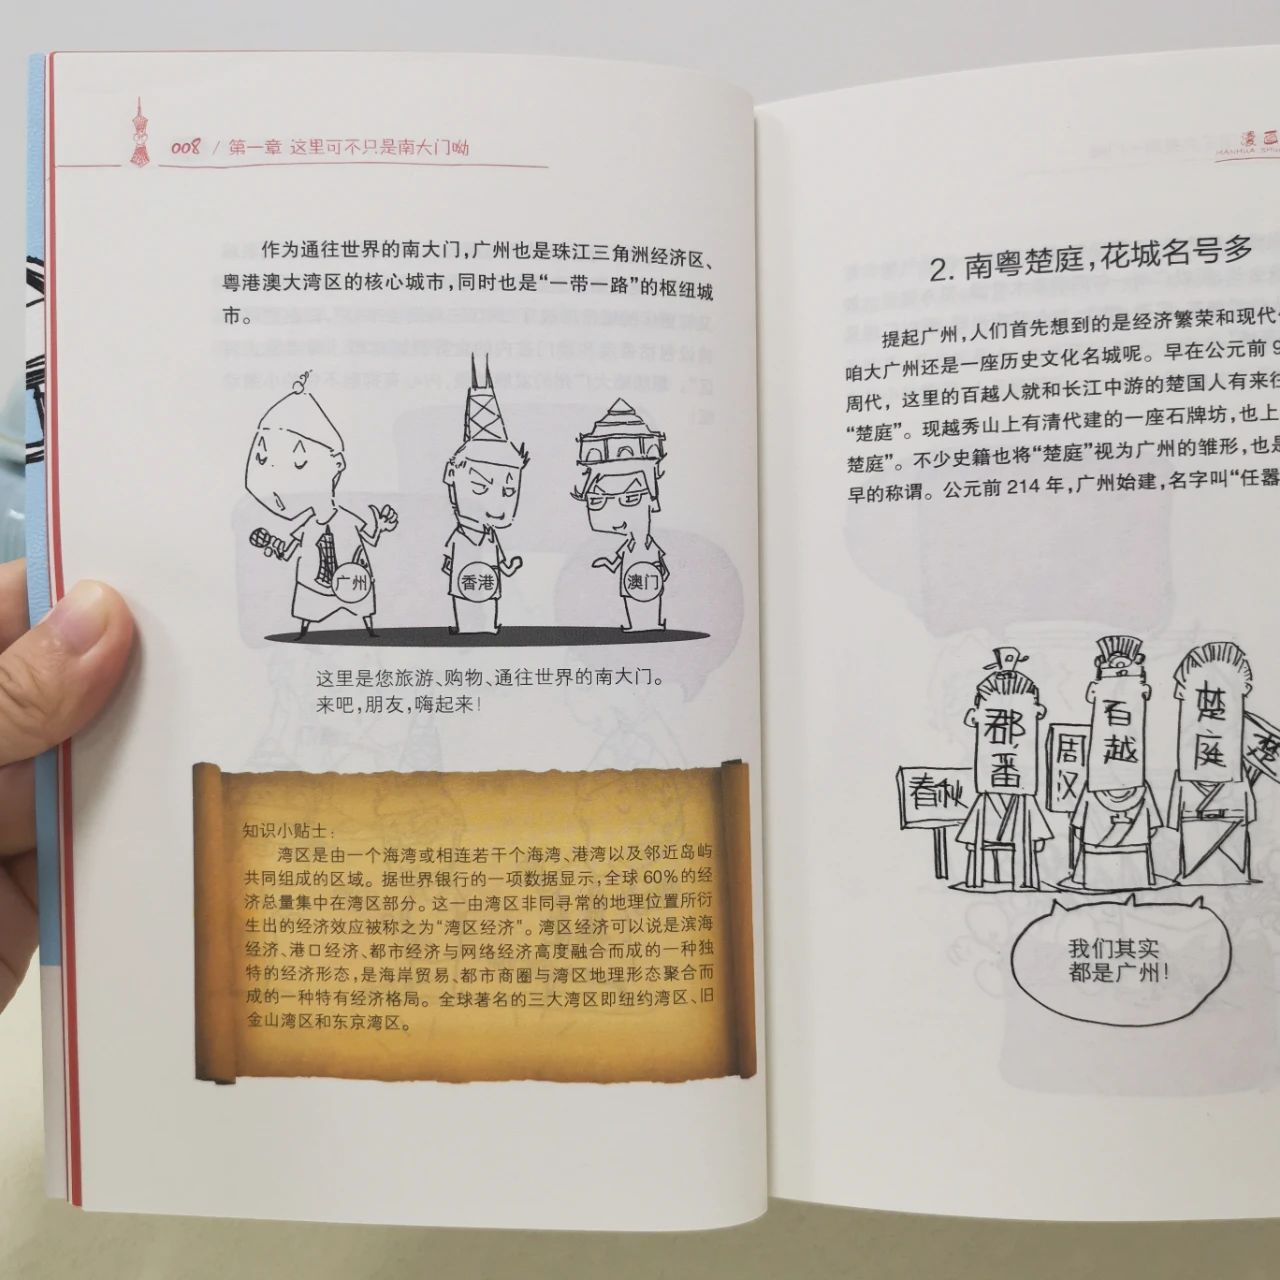 008 / 第一章 这里可不只是南大门呦
作为通往世界的南大门,广州也是珠江三角洲经济区、
粤港澳大湾区的核心城市,同时也是“一带一路”的枢纽城
市。
广州
香港
澳门
这里是您旅游、购物、通往世界的南大门。
来吧,朋友,嗨起来!
知识小贴士:
湾区是由一个海湾或相连若干个海湾、港湾以及邻近岛屿
共同组成的区域。据世界银行的一项数据显示,全球60%的经
济总量集中在湾区部分。这一由湾区非同寻常的地理位置所衍
生出的经济效应被称之为“湾区经济”。湾区经济可以说是滨海
经济、港口经济、都市经济与网络经济高度融合而成的一种独
特的经济形态,是海岸贸易、都市商圈与湾区地理形态聚合而
成的一种特有经济格局。全球著名的三大湾区即纽约湾区、旧
金山湾区和东京湾区。
漫画
MANHUA
2. 南粤楚庭,花城名号多
提起广州,人们首先想到的是经济繁荣和现代
咱大广州还是一座历史文化名城呢。早在公元前9
周代,这里的百越人就和长江中游的楚国人有来往
“楚庭”。现越秀山上有清代建的一座石牌坊,也上
楚庭”。不少史籍也将“楚庭”视为广州的雏形,也是
早的称谓。公元前214年,广州始建,名字叫“任嚣
春秋
郡番
周汉
百越
楚庭
我们其实
都是广州!